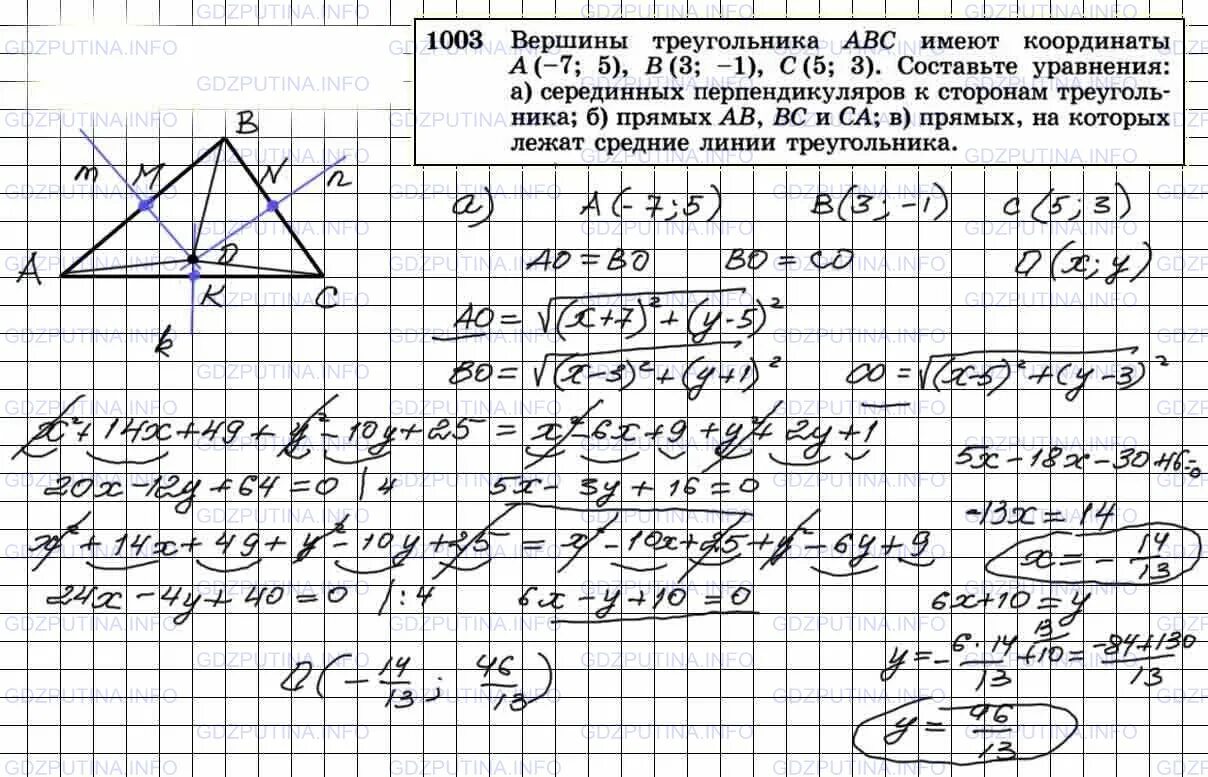 1003 Вершины треугольника ABC имеют координаты
A (−7; 5), B (3; −1), C (5; 3). Составьте уравнения:
а) серединных перпендикуляров к сторонам треуголь-
ника; б) прямых AB, BC и CA; в) прямых, на которых
лежат средние линии треугольника.
B
m M N n
A O
K C
k
а) A(-7;5) B(3;-1) C(5;3)
AO = BO BO = CO O(x;y)
AO = √(x+7)² + (y-5)²
BO = √(x-3)² + (y+1)² CO = √(x-5)² + (y-3)²
x² + 14x + 49 + y² - 10y + 25 = x² - 6x + 9 + y² + 2y + 1
20x - 12y + 64 = 0 | 4 5x - 3y + 16 = 0
x² + 14x + 49 + y² - 10y + 25 = x² - 10x + 25 + y² - 6y + 9
24x - 4y + 40 = 0 | :4 6x - y + 10 = 0
O(-14/13; 46/13)
5x - 18x - 30 + 16 = 0
-13x = 14
x = -14/13
6x + 10 = y
y = -6·14/13 + 10 = -84+130/13
y = 46/13
GDZPUTINA.INFO